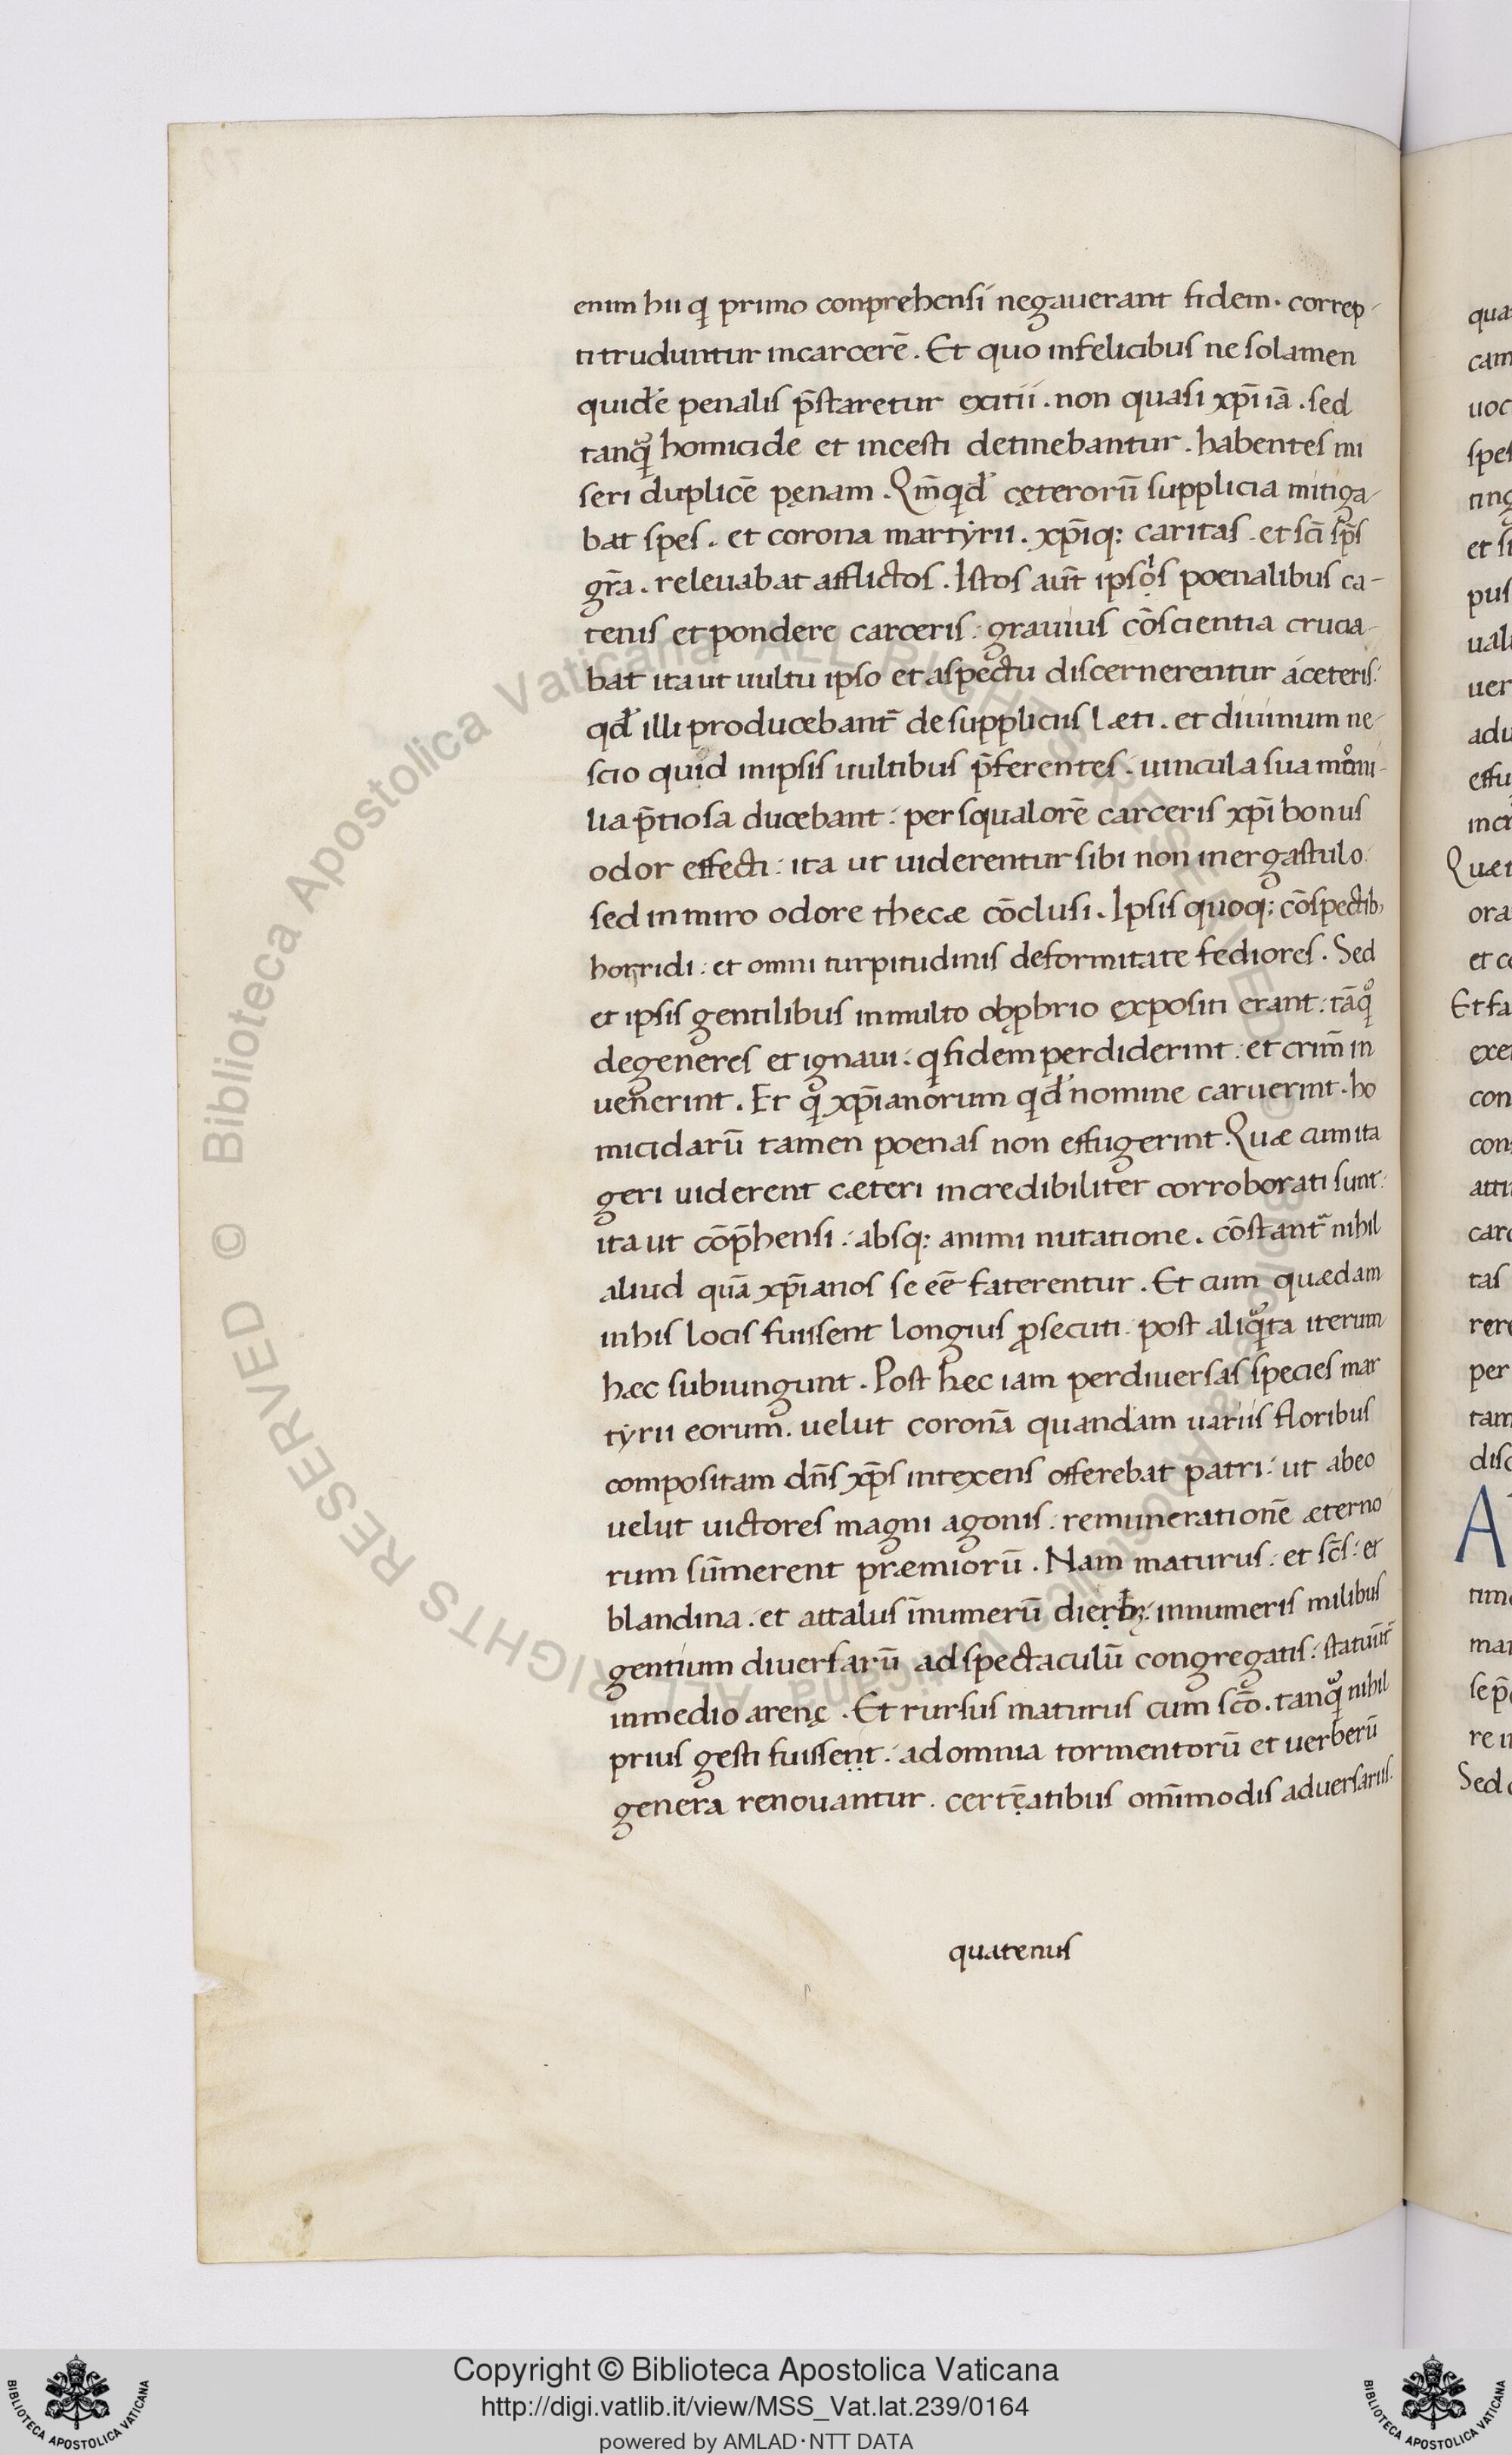 enim hii q primo conprehensi negauerant fidem. correp-
ti truduntur incarcerē. Et quo infelicibus ne solamen
quidē penalis p̄staretur exitii. non quasi xp̄iiā. sed
tanqͣ homicide et incesti detinebantur. habentes mi
seri duplicē pęnam. Qm̄ qd̓ cęterorū supplicia mitiga-
bat spes. et corona martyrii. xp̄iq: caritas. et sc̄i sp̄s
gr̄a. releuabat afflictos. Istos aut̄ ipsos poenalibus ca-
tenis et pondere carceris: grauius cōscientia crucia-
bat ita ut uultu ipso et aspectu discernerentur áceteris:
qd̓ illi producebant̄ de suppliciis læti. et diuinum ne-
scio quid inipsis uultibus p̄ferentes. uincula sua moni-
lia p̄tiosa ducebant: per squalorē carceris xp̄i bonus
odor effecti: ita ut uiderentur sibi non inergastulo
sed in miro odore thecæ cōclusi. Ipsis quoq; cōspectib,
horridi: et omni turpitudinis deformitate fediores. Sed
et ipsis gentilibus in multo obp̱brio expositi erant: tāqͦ
degeneres et ignaui: q fidem perdiderint: et crim̄ in
uenerint. Et q xp̄ianorum qd̓ nomine caruerint. ho
micidarū tamen poenas non effugerint. Quæ cum ita
geri uiderent cæteri incredibiliter corroborati sunt:
ita ut cōp̄hensi: absq: animi nutatione. cōstant̄ nihil
aliud quā xp̄ianos se eē faterentur. Et cum quædam
inhis locis fuissent longius ꝓsecuti. post aliqͣta iterum
hæc subiungunt. Post hec iam perdiuersas species mar
tyrii eorum. uelut coronā quandam uariis floribus
compositam dn̄s xp̄s intexens offerebat patri: ut abeo
uelut uictores magni agonis: remunerationē æterno
rum sūmerent præmiorū. Nam maturus: et sc̄s: et
blandina. et attalus īnumerū dierꝝ: innumeris milibus
gentium diuersarū adspectaculū congregatis: statuūt̄
inmedio arenę. Et rursus maturus cum sc̄o. tanqͣ nihil
prius gesti fuissent: adomnia tormentorū et uerberū
genera renouantur. certēatibus om̄imodis aduersariis.
quatenus
Copyright © Biblioteca Apostolica Vaticana
http://digi.vatlib.it/view/MSS_Vat.lat.239/0164
powered by AMLAD·NTT DATA